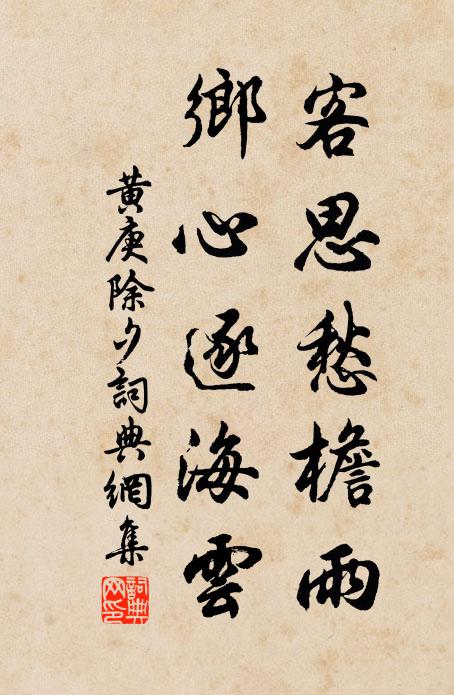 客思愁檐雨
鄉心逐海雲
黄庚除夕詞典網集
詞典網印